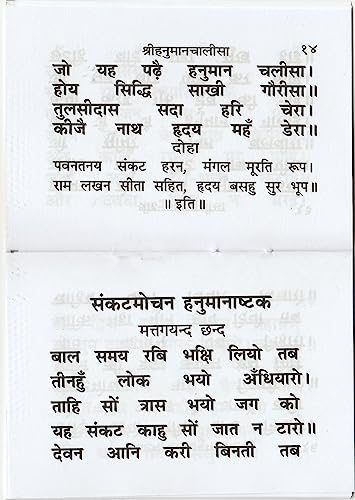 श्रीहनुमानचालीसा १४
जो यह पढ़ै हनुमान चलीसा।
होय सिद्धि साखी गौरीसा।
तुलसीदास सदा हरि चेरा।
कीजै नाथ हृदय महँ डेरा।
दोहा
पवनतनय संकट हरन, मंगल मूरति रूप।
राम लखन सीता सहित, हृदय बसहु सुर भूप॥
॥ इति॥
संकटमोचन हनुमानाष्टक
मत्तगयन्द छन्द
बाल समय रबि भक्षि लियो तब
तीनहुँ लोक भयो अँधियारो।
ताहि सों त्रास भयो जग को
यह संकट काहु सों जात न टारो॥
देवन आनि करी बिनती तब